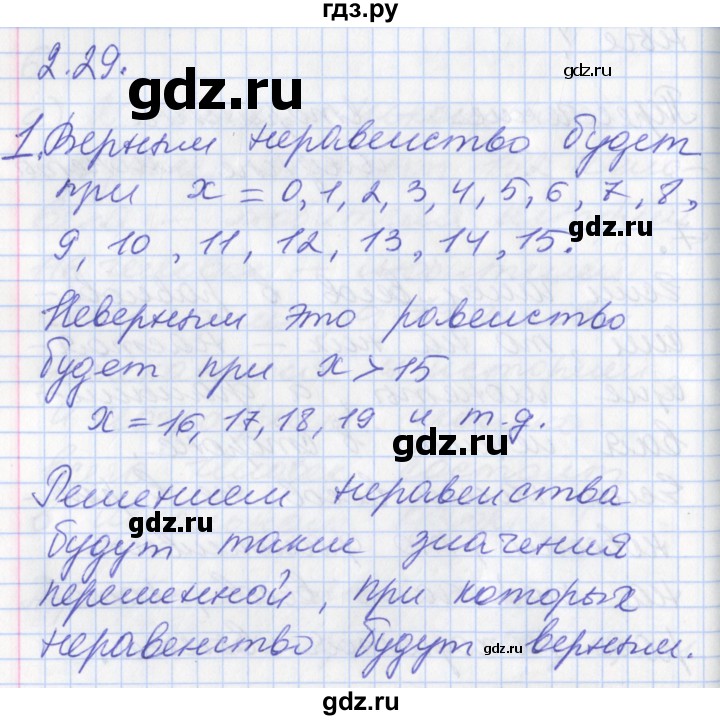 гдз.ру
2.29.
gdz.ru
gdz.ru
1. Верным неравенство будет
при x = 0, 1, 2, 3, 4, 5, 6, 7, 8,
gdz.ru
9, 10, 11, 12, 13, 14, 15.
Неверным это равенство
будет при x > 15
x = 16, 17, 18, 19 и т.д.
gdz.ru
Решением неравенства
gdz.ru
будут такие значения
переменной, при которых
неравенство будут верным.
gdz.ru
gdz.ru